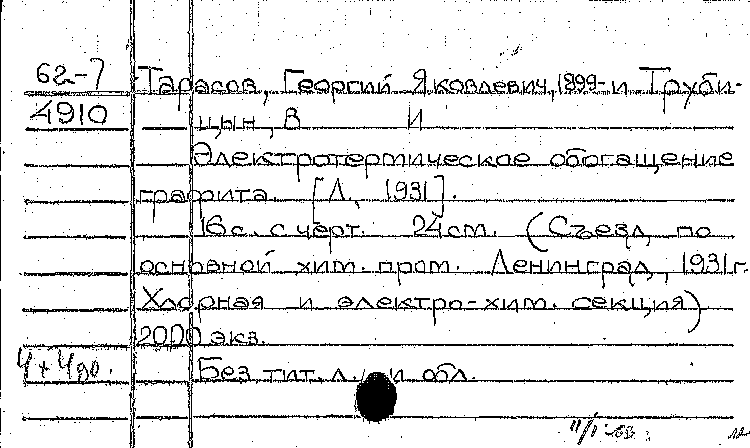 62-7 Тарасов, Георгий Яковлевич, 1899- и Труби-
4910 цын, В И
Электротермическое обогащение
графита. [Л., 1931].
16 с. с черт. 24 см. (Съезд по
основной хим. пром. Ленинград, 1931 г.
Хлорная и электро-хим. секция)
2000 экз.
Без тит. л. и обл.